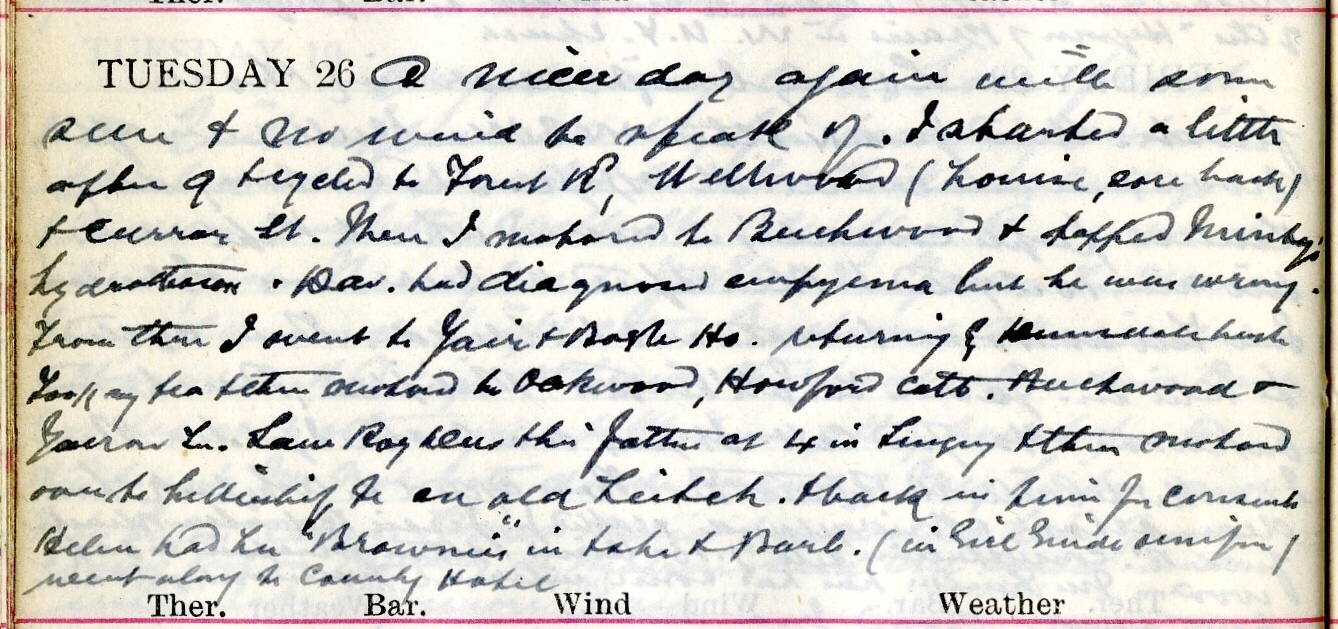 TUESDAY 26 A nicer day again with some
sun & no wind to speak of. I started a little
after 9 & cycled to Forest Rd, Wellwood (Louise, sore back)
& Curror St. Then I motored to Beechwood & tapped
hydrothorax. Dav. had diagnosed empyema but he was wrong.
From there I went to Yair & Ho. returning &
Took my tea & then motored to Oakwood, Howford Cott. Beechwood &
Yarrow Ln. Saw & his father at 4 in Surgery & then motored
over to to an old Leitch. & back in time for consults
Helen had her "Brownies" in to & Barb. (in Girl Guide uniform)
went along to County Hotel
Ther. Bar. Wind Weather